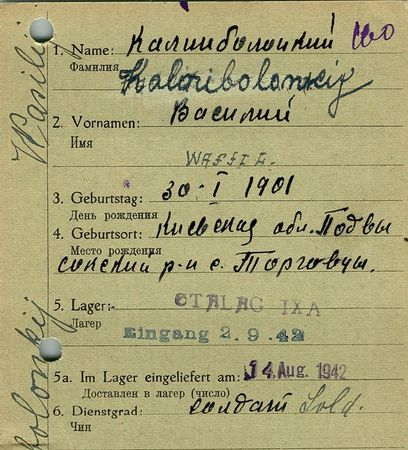 1. Name: Калиноболоцкий
Фамилия
Kaloribolonkij
2. Vornamen: Василий
Имя
WASSIL.
3. Geburtstag: 30-I 1901
День рождения
4. Geburtsort: Киевская обл. Подвы
Место рождения
сокский р-н с. Торговцы.
5. Lager: STALAG IXA
Лагер
Eingang 2. 9. 42
5a. Im Lager eingeliefert am: 14. Aug. 1942
Доставлен в лагер (число)
6. Dienstgrad: солдат Sold.
Чин
Wasilij
bolonkij